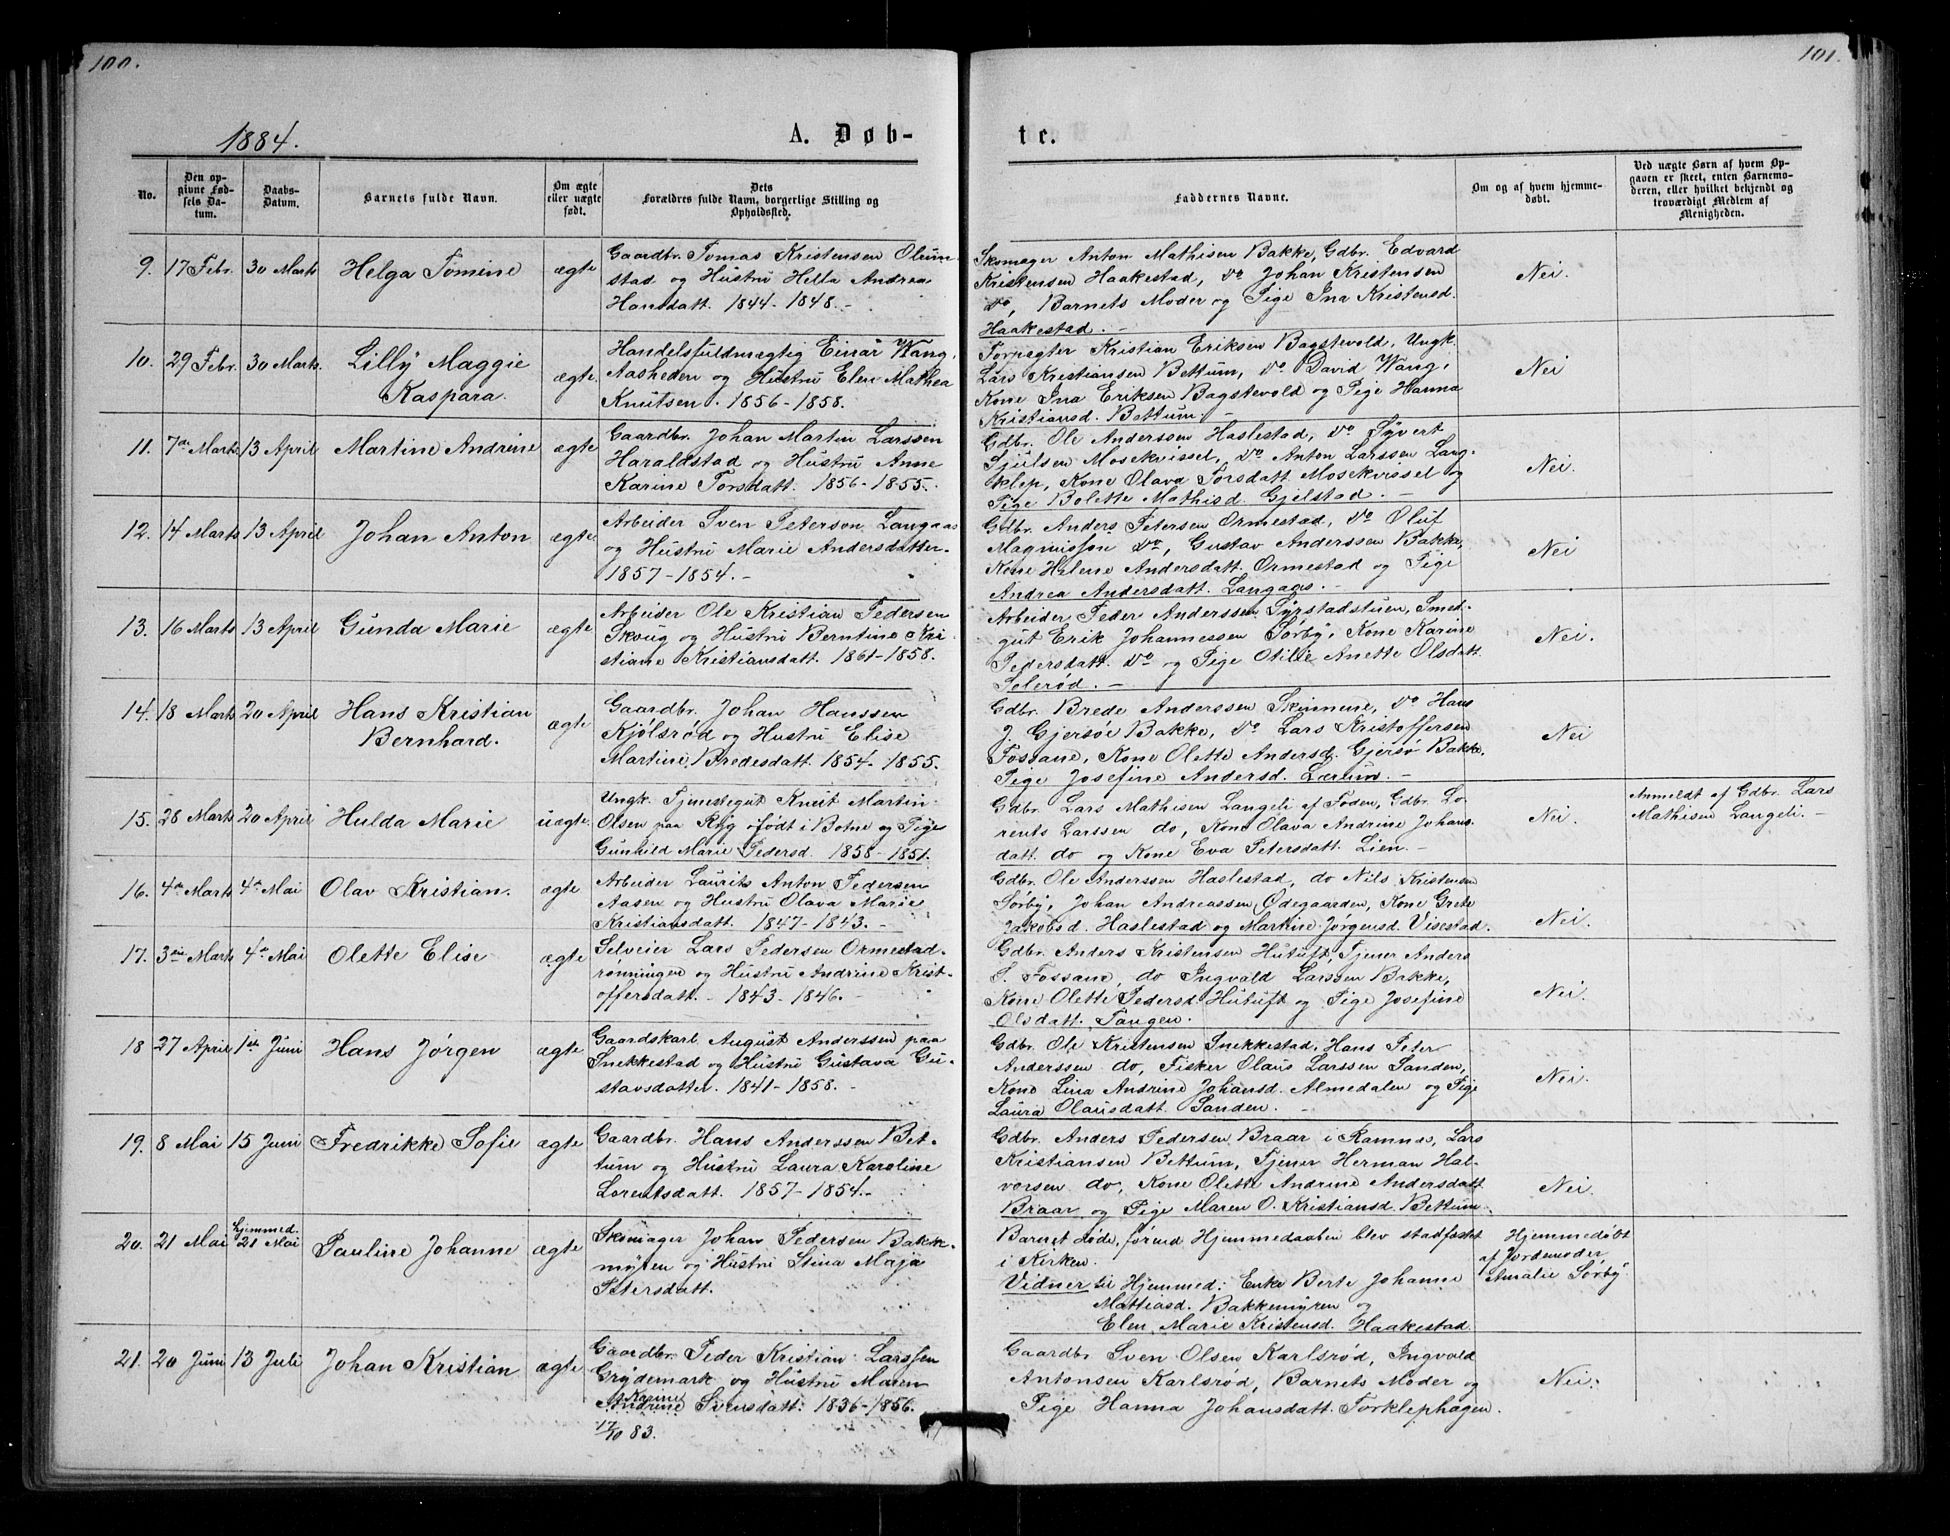 100.
1884.
A. Døb-
No.
Den op-
givne Fød-
sels Da-
tum.
Daabs-
Datum.
Barnets fulde Navn.
Om ægte
eller uægte
født.
Dets
Forældres fulde Navn, borgerlige Stilling og
Opholdssted.
9. 17 Febr. 30 Marts Helga Tomine ægte
Gaardbr. Tomas Kristensen Olum-
stad og Hustru Hella Andrea
Hansdatt. 1844-1848.-
10. 29 Febr. 30 Marts. Lilly Maggie
Kaspara. ægte
Handelsfuldmægtig Einar Wang,
Aasheden og Hustru Elen Mathea
Knutsen. 1856-1858.
11. 7de Marts 13 April Martine Andrine ægte
Gaardbr. Johan Martin Larssen
Haraldstad og Hustru Anne
Karine Torsdatt. 1856-1855.
12. 14 Marts 13 April Johan Anton ægte
Arbeider Sven Peterson Langaas
og Hustru Marie Andersdatter.
1857-1854.-
13. 16 Marts 13 April Gunda Marie ægte
Arbeider Ole Kristian Pedersen
Skoug og Hustru Berntine Kri-
stiane Kristiansdatt. 1861-1858.
14. 18 Marts 20 April Hans Kristian
Bernhard. ægte
Gaardbr. Johan Hanssen
Kjølsrød og Hustru Elise
Martine Bredesdatt. 1854-1855.
15. 28 Marts 20 April Hulda Marie uægte
Ungk. Tjenestegut Knut Martin
Olsen paa Røg født i Botne og Pige
Gunhild Marie Pedersd. 1858-1851.
16. 4de Marts 4de Mai Olav Kristian. ægte
Arbeider Laurits Anton Pedersen
Aasen og Hustru Olava Marie
Kristiansdatt. 1847-1843.-
17. 3die Marts 4de Mai Olette Elise ægte
Selveier Lars Pedersen Ormestad-
rønningen og Hustru Andrine Krist-
offersdatt. - 1843-1846.-
18 27 April 1ste Juni Hans Jørgen ægte
Gaardskarl August Anderssen paa
Snekkestad og Hustru Gustava Gu-
stavsdatter. 1841-1858.-
19. 8 Mai 15 Juni Fredrikke Sofie ægte
Gaardbr. Hans Anderssen Bet-
tum og Hustru Laura Karoline
Lorentsdatt. 1857-1854.-
20. 21 Mai hjemmed.
21 Mai Pauline Johanne ægte
Skomager Johan Pedersen Bakke-
myren og Hustru Stina Maja
Petersdatt.
21. 20 Juni 13 Juli Johan Kristian ægte
Gaardbr. Peder Kristian Larssen
Grydemark og Hustru Maren
Karine
Andrine Svensdatt. 1836-1856.
17/10 83.
101.
te.
Faddernes Navne.
Om og af hvem hjemme-
døbt.
Ved uægte Børn af hvem Op-
gaven er skeet, enten Barnemo-
deren, eller hvilket bekjendt og
troværdigt Medlem af
Menigheden.
Skomager Anton Mathisen Bakke, Gdbr. Edvard
Kristensen Haakestad, do Johan Kristensen
do, Barnets Moder og Pige Ina Kristensd.
Haakestad.-
Nei.
Forpagter Kristian Eriksen Bagstevold, Ungk.
Lars Kristiansen Bettum, do David Wang,
Kone Ina Eriksen Bagstevold og Pige Hanna
Kristiansd. Bettum.-
Nei
Gdbr. Ole Anderssen Haslestad, do Syvert
Sjulsen Mosekvissel, do Anton Larssen Lang-
klep, Kone Olava Torsdatt. Mosekvissel og
Pige Bolette Mathisd. Gjelstad.-
Nei.
Gdbr. Anders Petersen Ormestad, do Oluf
Magnussen do, Gustav Anderssen Bakke,
Kone Helene Andersdatt. Ormestad og Pige
Andrea Andersdatt. Langaas.-
Nei
Arbeider Peder Anderssen Syrstadstuen, Smed-
gut Erik Johannessen Sørby, Kone Karine
Pedersdatt. do og Pige Otilie Anette Olsdatt.
Selerød.-
Nei.
Gdbr. Brede Anderssen Skinmene, do Hans
J. Gjersøe Bakke, do Lars Kristoffersen
Fossane, Kone Olette Andersd. Gjersø Bakke,
Pige Josefine Andersd. Lærum.-
Nei
Gdbr. Lars Mathisen Langeli af Foden, Gdbr. Lo-
rents Larssen do, Kone Olava Andrine Johans-
datt. do og Kone Eva Petersdatt. Lien.-
Nei.
Anmeldt af Gdbr. Lars
Mathisen Langeli.-
Gdbr. Ole Anderssen Haslestad, do Nils Kristensen
Sørby, Johan Andreassen Ødegaarden, Kone Grete
Jakobsd. Haslestad og Martine Jørgensd. Visestad.
Nei.
Gdbr. Anders Kristensen Hutuft, Tjener Anders
S. Fossane, do Ingvald Larssen Bakke,
Kone Olette Pedersd. Hutuft og Pige Josefine
Olsdatt. Tangen.
Nei.
Gdbr. Ole Kristensen Snekkestad, Hans Peter
Anderssen do, Fisker Olaus Larssen Sanden,
Kone Lina Andrine Johansd. Almedalen og Pige
Laura Olausdatt. Sanden.-
Nei.
Gdbr. Anders Pedersen Braar i Ramnes, Lars
Kristiansen Bettum, Tjener Herman Hal-
vorsen do, Kone Olette Andrine Andersdatt.
Braar og Pige Maren O. Kristiansd. Bettum.
Nei.
Barnet døde, førend Hjemmedaaben blev stadfæstet
i Kirken.
Vidner til Hjemmed: Enke Berte Johanne
Mattiasd. Bakkemyren og
Elen Marie Kristensd. Haakestad.
Hjemmedøbt
af Jordemoder
Amalie Sørby.
Gaardbr Sven Olsen Karlsrød, Ingvald
Antonsen Karlsrød, Barnets Moder og
Pige Hanna Johansdatt. Torklephagen.
Nei.